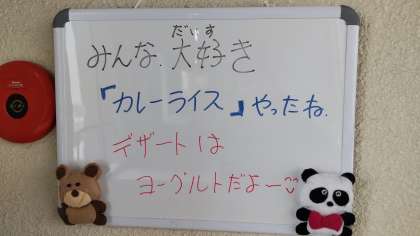 だいす
みんな.大好き
「カレーライス」やったね.
デザートは
ヨーグルトだよー